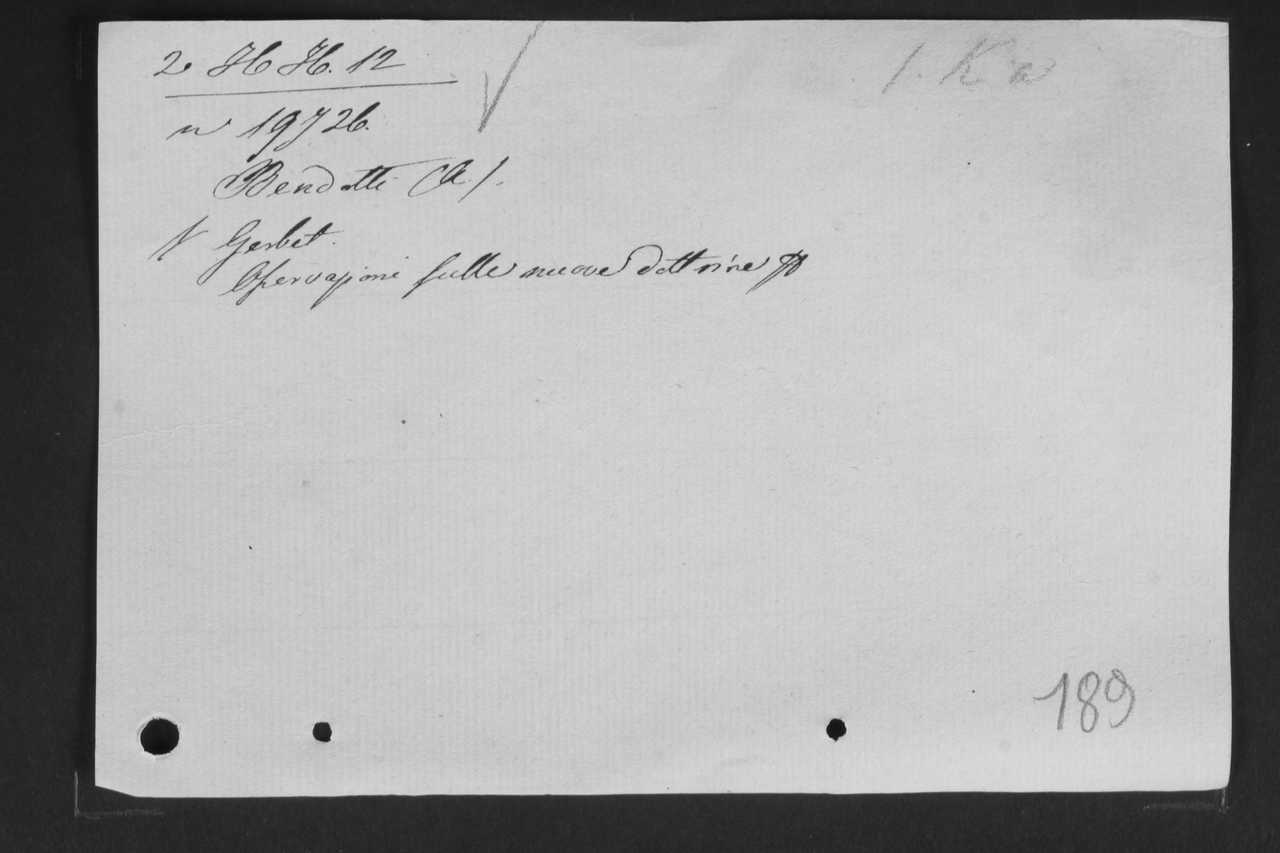 2 H H. 12
1. K a
n 19726.
Bendotti (A).
V Gerbet.
Osservazioni sulle nuove dottrine
189